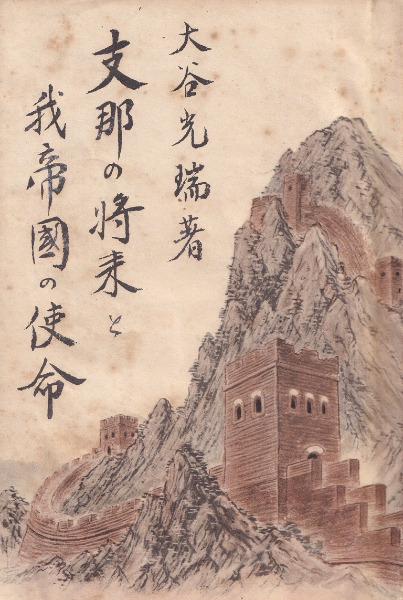 大谷光瑞著
支那の将来と
我帝國の使命